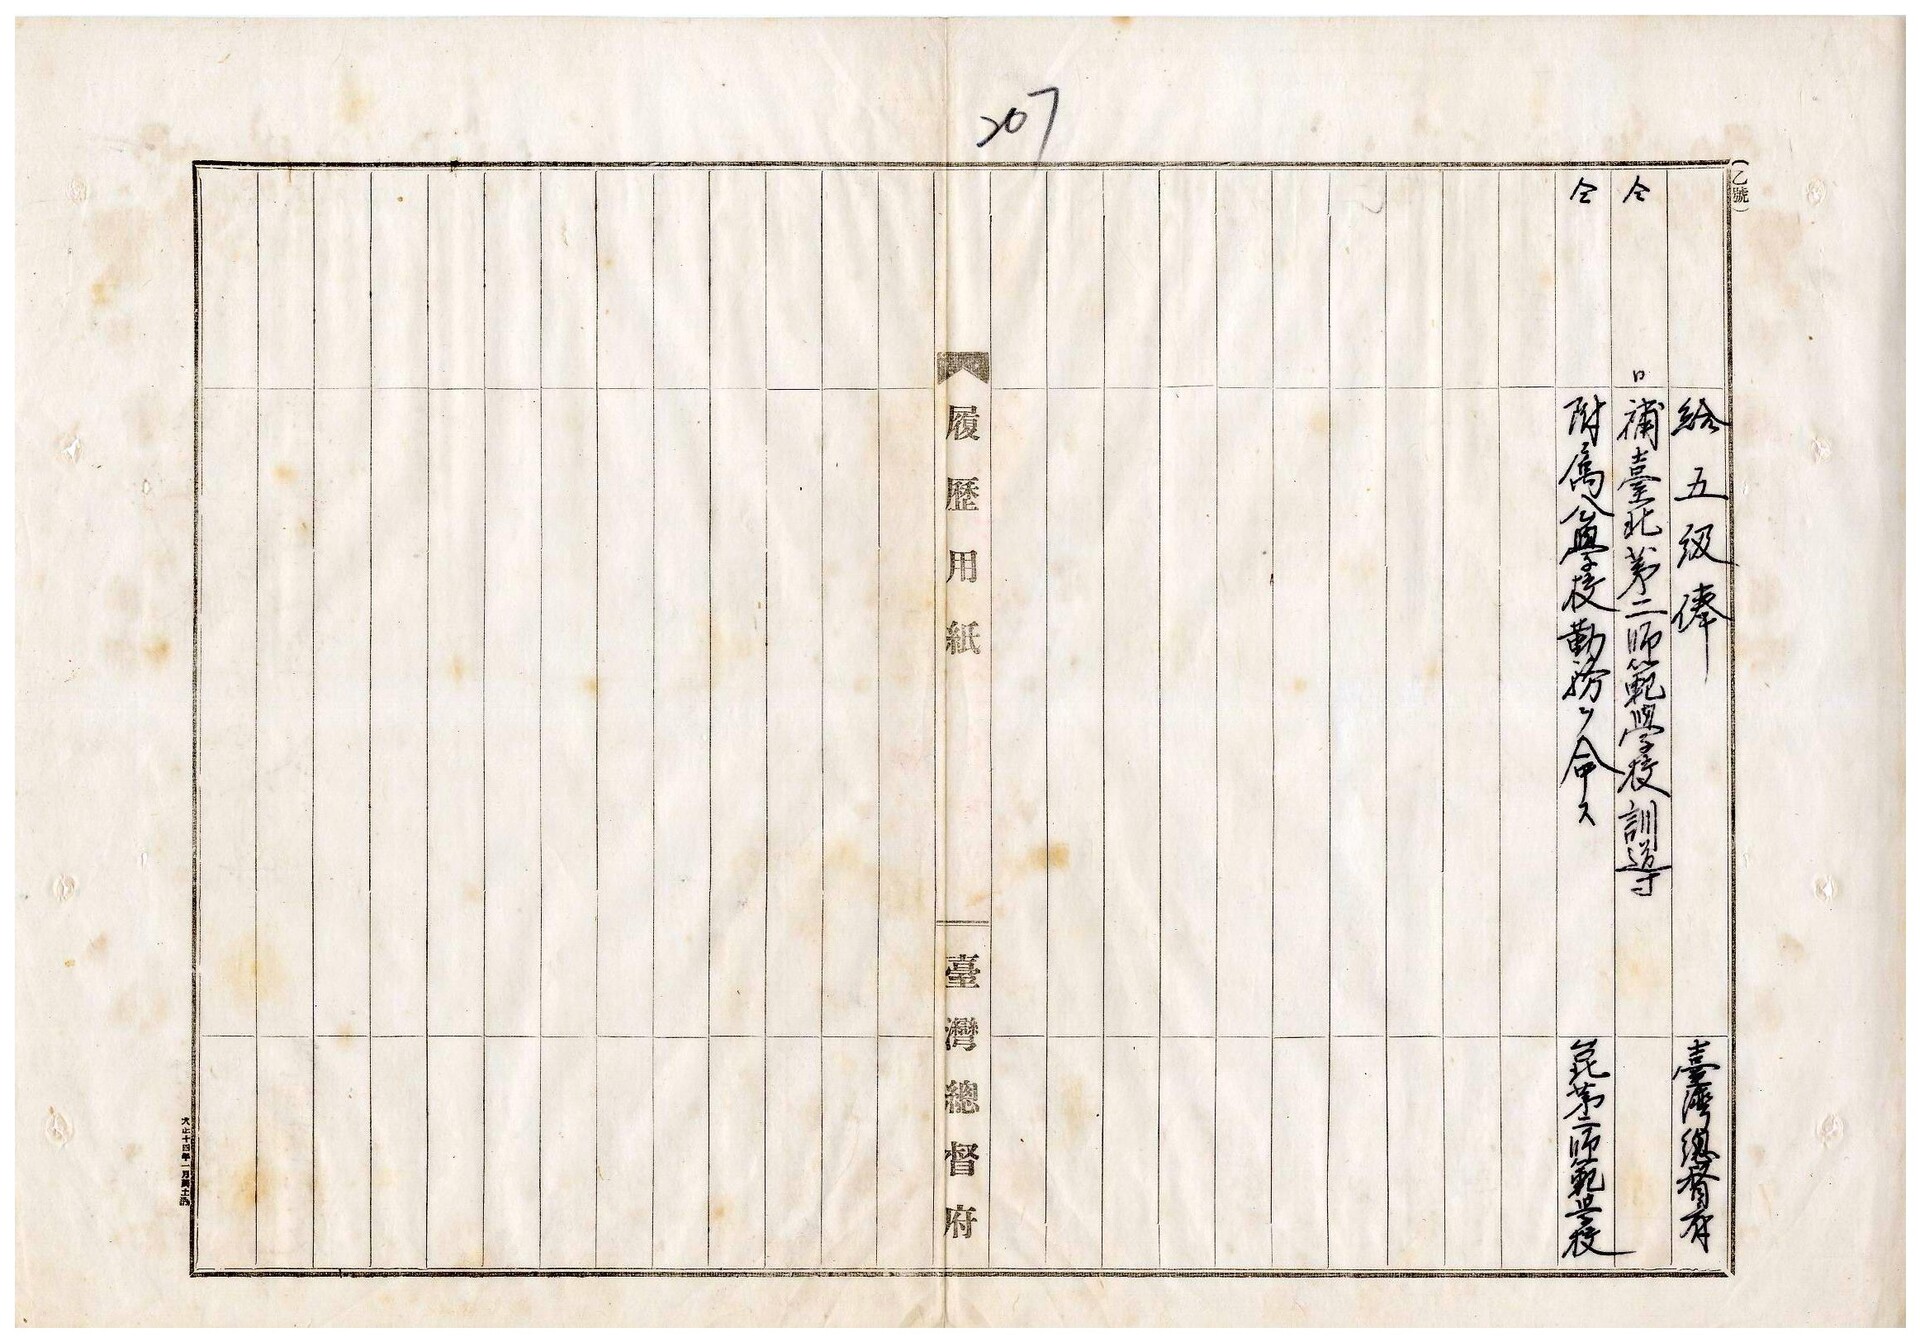 207
(乙號)
給五級俸 臺灣總督府
仝 〃 補臺北第二師範學校訓導
仝 附属公學校勤務ヲ命ス 台北第二師範學校
履歷用紙
臺灣總督府